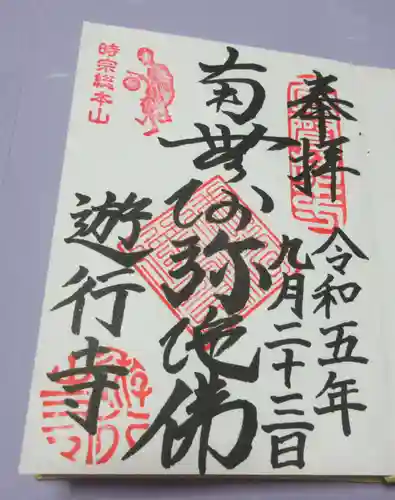 奉拝
令和五年
九月二十三日
南無阿弥陀佛
時宗総本山
遊行寺